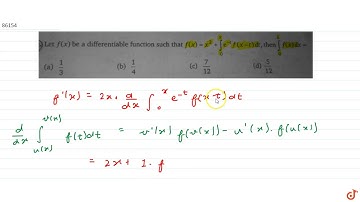 86154
Let f(x) be a differentiable function such that f(x) = x² + ∫₀ˣ e⁻ᵗ f(x−t)dt, then ∫₀¹ f(x)dx =
(a) 1/3 (b) 1/4 (c) 7/12 (d) 5/12
f'(x) = 2x + d/dx ∫₀ˣ e⁻ᵗ f(x−t) dt
d/dx ∫ᵤ₍ₓ₎ᵛ⁽ˣ⁾ f(t)dt = v'(x) f(v(x)) − u'(x) . f(u(x))
= 2x + 1 . f